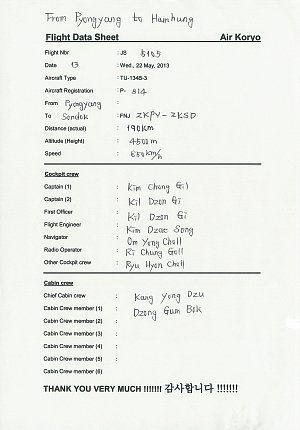 From Pyongyang to Hamhung
Flight Data Sheet Air Koryo
Flight Nbr : JS 5105
Date 13 : Wed., 22 May, 2013
Aircraft Type : TU-134B-3
Aircraft Registration : P- 814
From Pyongyang :
To Sondok : FNJ ZKPY-ZKSD
Distance (actual) : 190KM
Altitude (Height) : 4500m
Speed : 650km/h
Cockpit crew
Captain (1) : Kim Chang Gil
Captain (2) : Kil Dzon Gi
First Officer : Kil Dzon Gi
Flight Engineer : Kim Dzae Song
Navigator : Om Yong Choll
Radio Operator : Ri Chung Goll
Other Cockpit crew : Ryu Hyon Choll
Cabin crew
Chief Cabin crew : Kang Yong Dzu
Cabin Crew member (1) : Dzong Gum Bok
Cabin Crew member (2) :
Cabin Crew member (3) :
Cabin Crew member (4) :
Cabin Crew member (5) :
Cabin Crew member (6)
THANK YOU VERY MUCH !!!!!!! 감사합니다 !!!!!!!